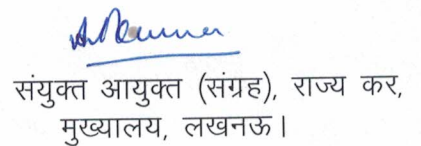 संयुक्त आयुक्त (संग्रह), राज्य कर,
मुख्यालय, लखनऊ।